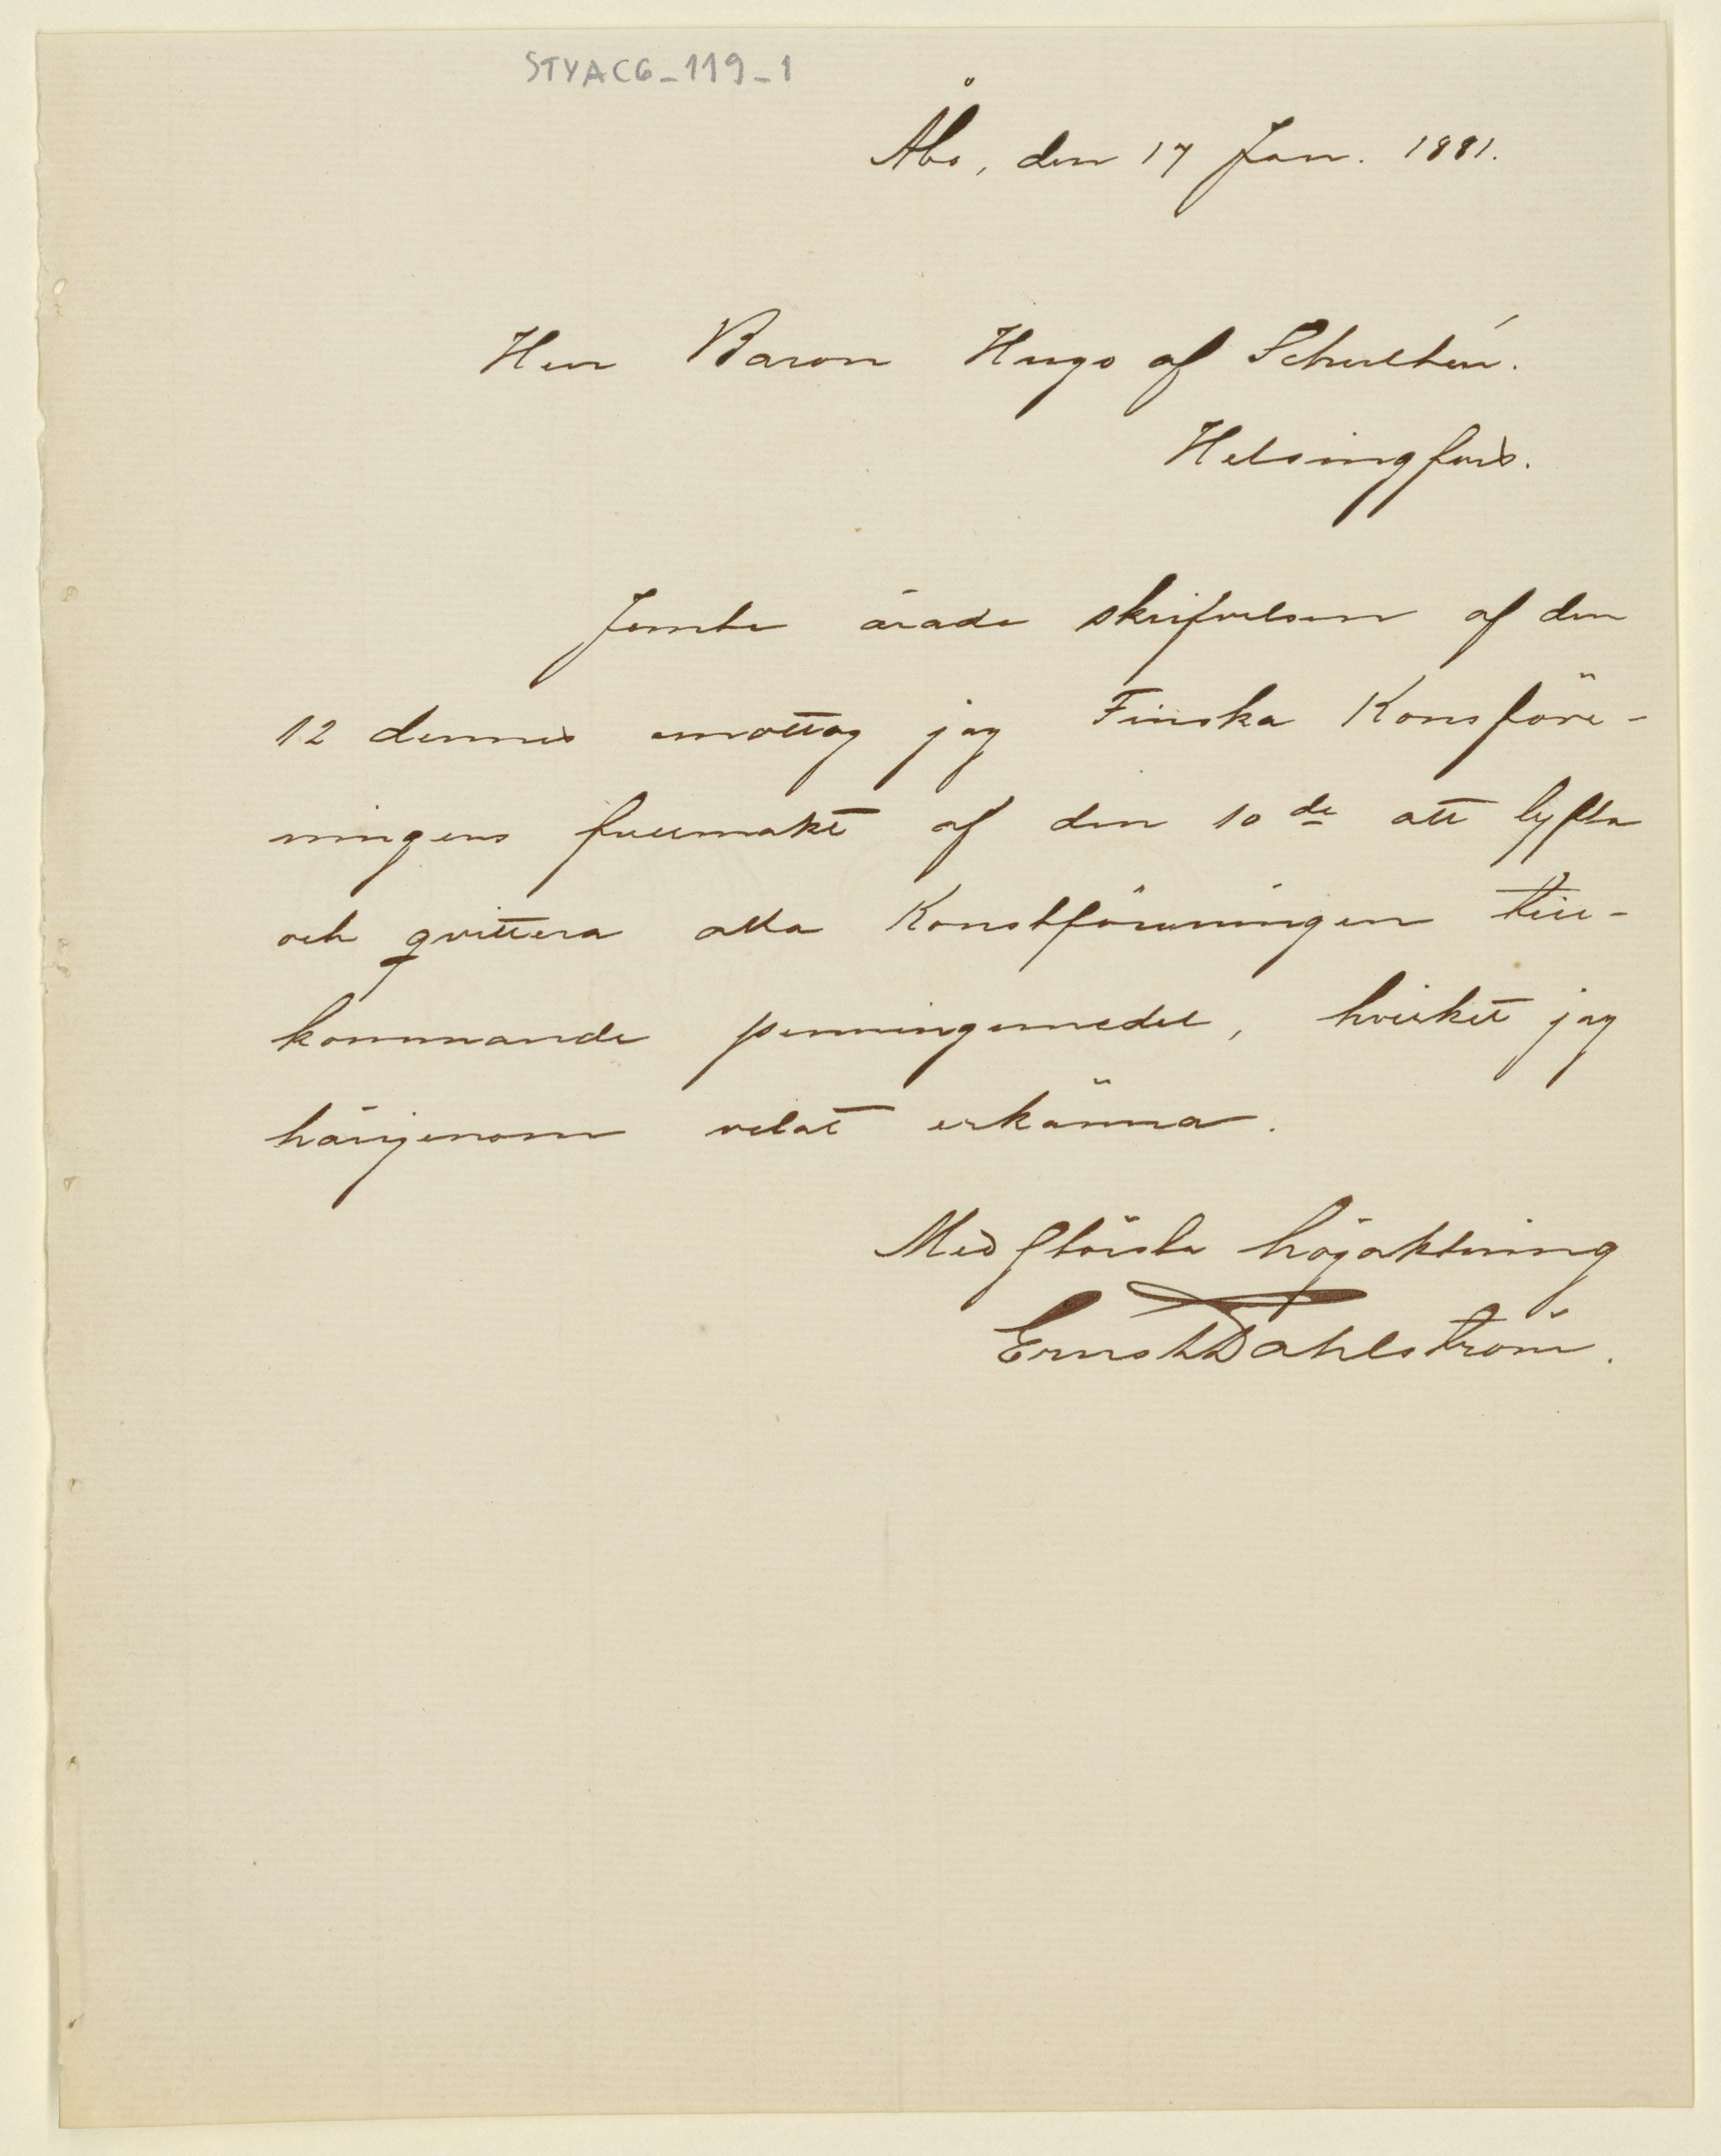 STYAC6_119_1
Åbo, den 17 Jan. 1881.
Herr Baron Hugo af Schultén.
Helsingfors.
Jemte ärade skrifvelsen af den
12 dennes emottog jag Finska Konsföre-
ningens fullmakt af den 10de att lyfta
och qvittera alla Konstföreningen till-
kommande penningemedel, hvilket jag
härigenom velat erkänna.
Med största högaktning
Ernst Dahlström.